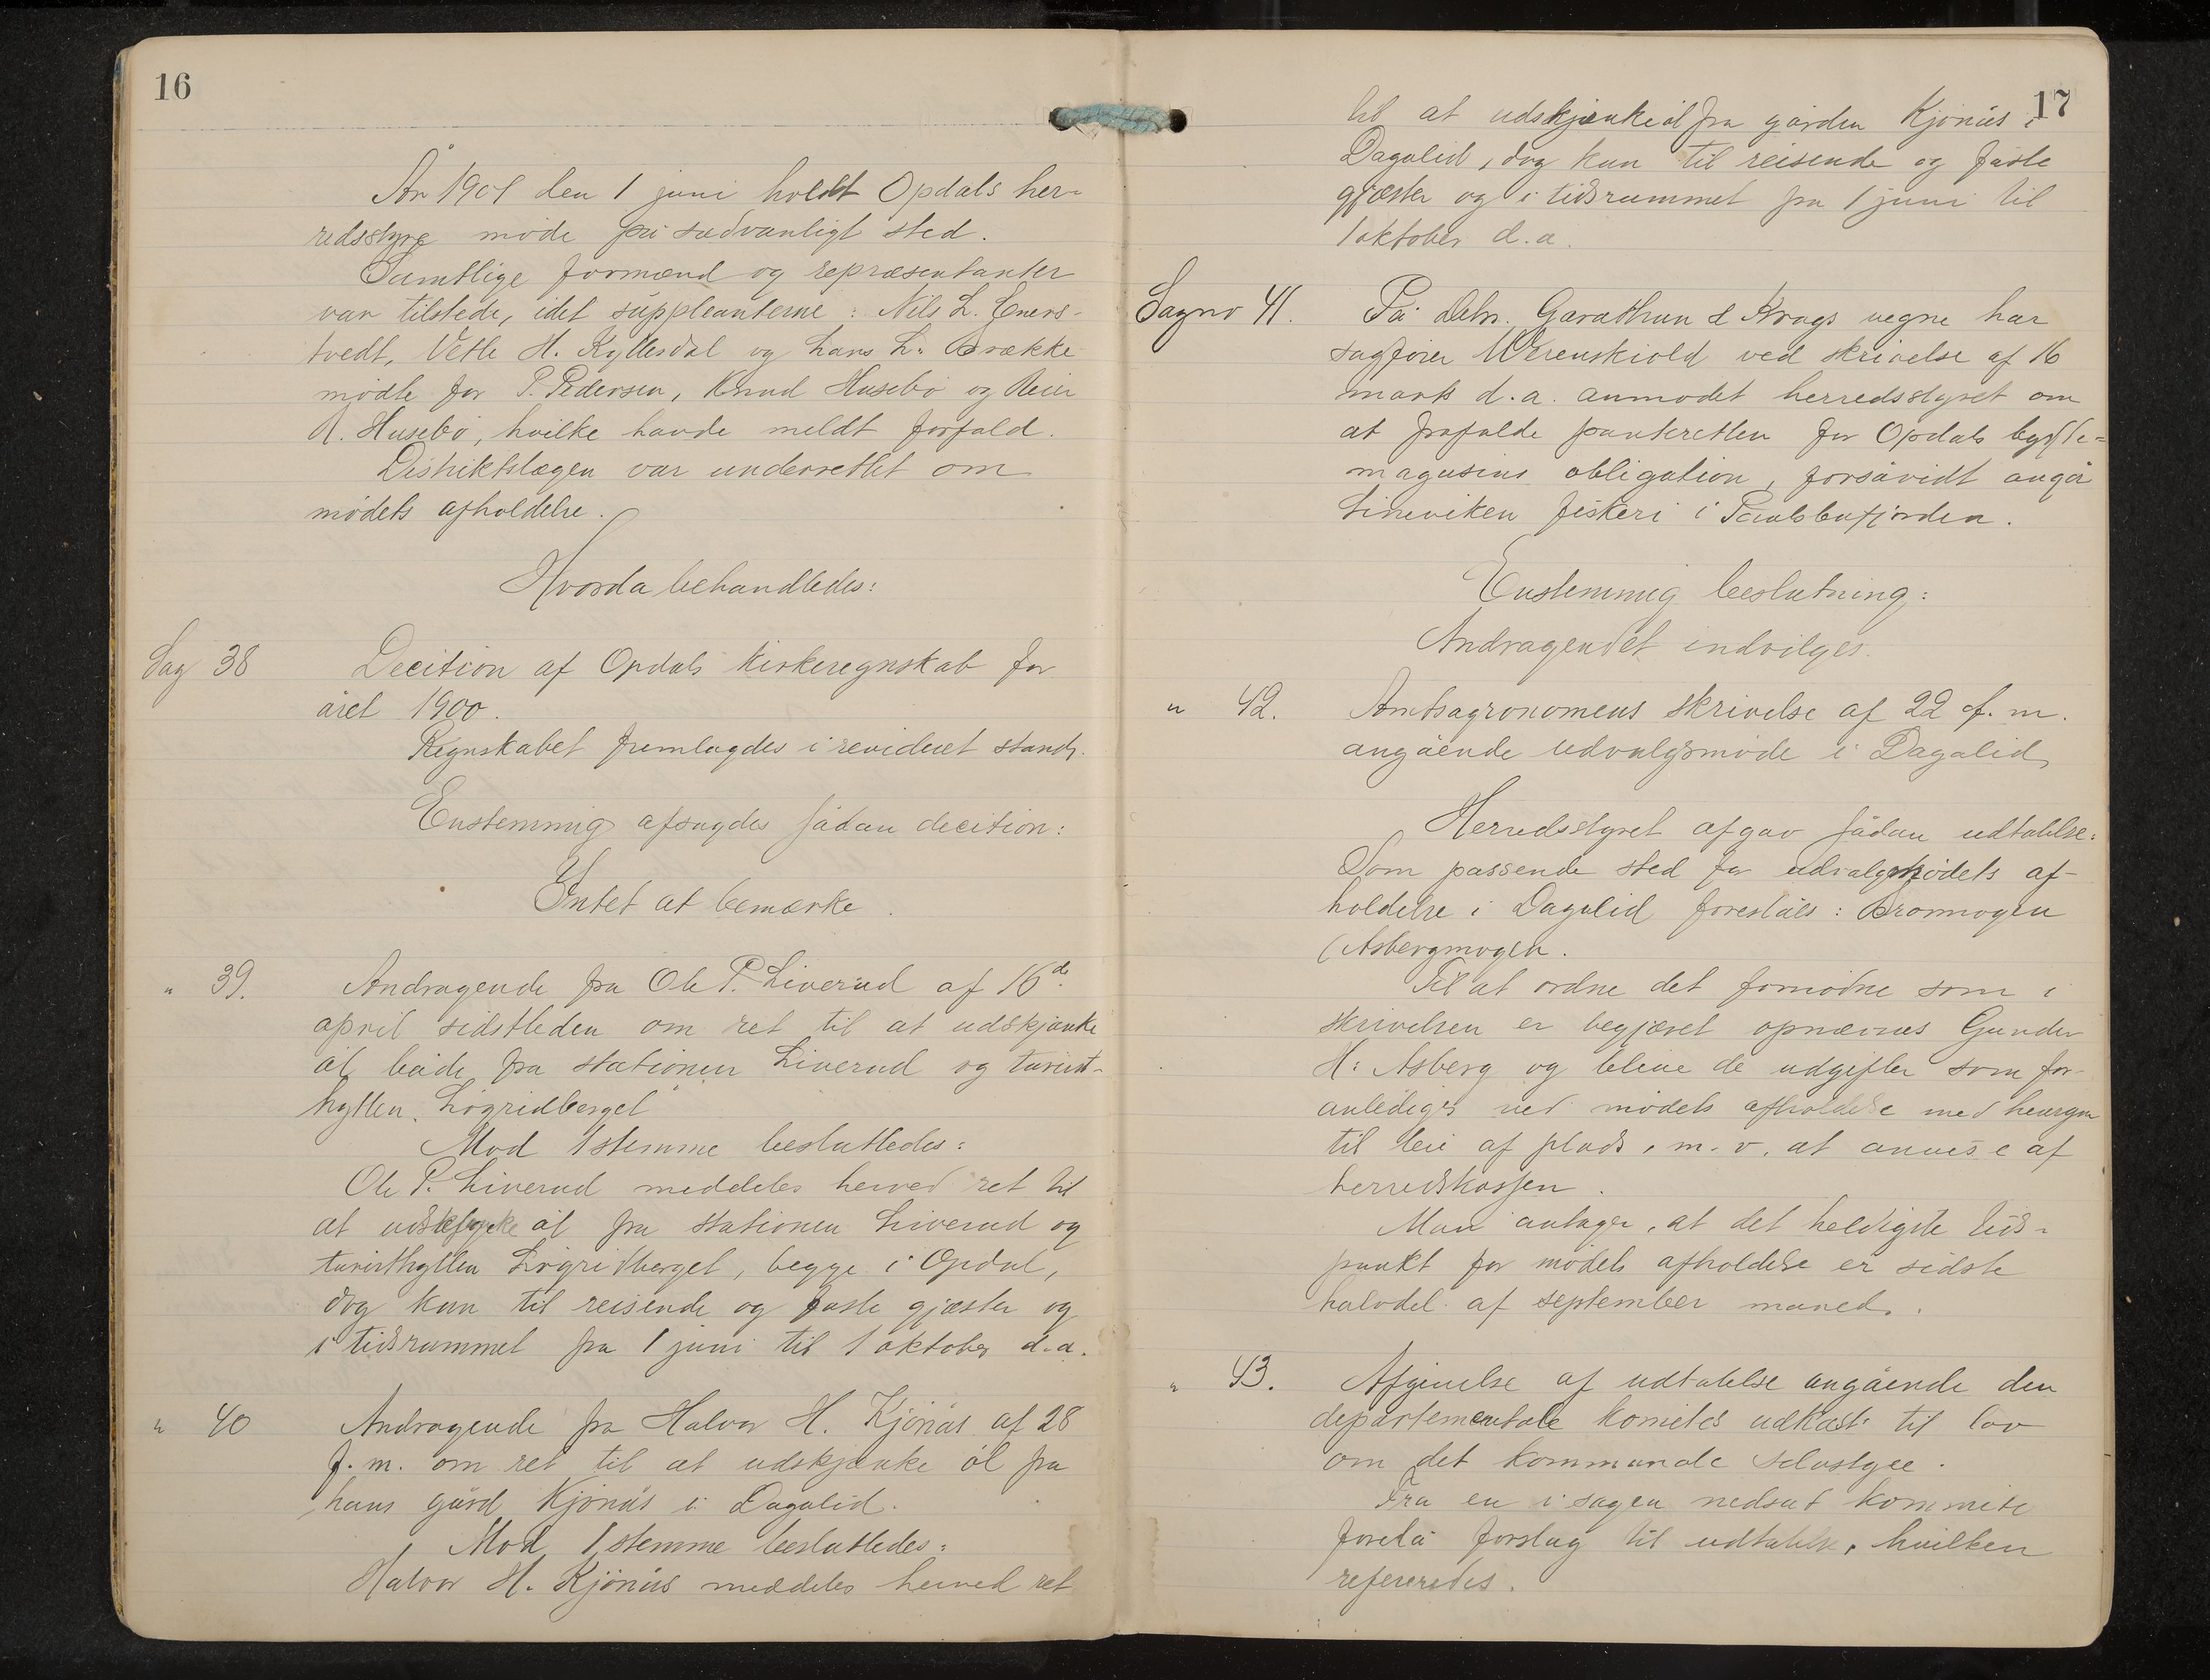 16
År 1901 den 1 juni holdt Opdals her-
redsstyre møde på sædvanligt sted.
Samtlige formænd og repræsentanter
var tilstede, idet suppleanterne: Nils L. Eners-
tvedt, Vetle H. Kyllesdal og Lars L. Brække
mødte for P. Pedersen, Knud Husebø og Reier
A. Husebø, hvilke havde meldt forfald.
Distriktslægen var underrettet om
mødets afholdelse.
Hvorda behandledes:
Sag 38 Decition af Opdals kirkeregnskab for
året 1900.
Regnskabet fremlagdes i revideret stand.
Enstemmig afsagdes sådan decition:
Intet at bemærke.
" 39. Andragende fra Ole P. Liverud af 16de
april sidstleden om ret til at udskjænke
øl både fra stationen Liverud og turist-
hytten "Løgridberget"
Mod 1 stemme besluttedes:
Ole P. Liverud meddeles herved ret til
at udskjænke øl fra stationen Liverud og
turisthytten Løgridberget, begge i Opdal,
dog kun til reisende og faste gjæster og
i tidsrummet fra 1 juni til 1 oktober d.a.
" 40 Andragende fra Halvor H. Kjønås af 28
f.m. om ret til at udskjænke øl fra
hans gård Kjønås i Dagalid.
Mod 1 stemme besluttedes:
Halvor H. Kjønås meddeles herved ret
17
til at udskjænke øl fra gården Kjønås i
Dagalid, dog kun til reisende og faste
gjæster og i tidsrummet fra 1 juni til
1 oktober d.a.
Sag no 41. På Dehr. Garathun & Krags vegne har
sagfører Werenskiold ved skrivelse af 16
marts d.a. anmodet herredsstyret om
at frafalde panteretten for Opdals bygde-
magasins obligation, forsåvidt angår
Lineviken fiskeri i Pålsbufjorden.
Enstemmig beslutning:
Andragendet indvilges.
" 42. Amtsagronomens skrivelse af 22 f.m.
angående udvalgsmøde i Dagalid
Herredsstyret afgav sådan udtalelse:
Som passende sted for udvalgsmødets af-
holdelse i Dagalid foreslåes: Bromogen
(Asbergmogen.
Til at ordne det fornødne som i
skrivelsen er begjæret opnævnes Gunder
H. Asberg og blive de udgifter som for-
anlediges ved mødets afholdelse med hensyn
til leie af plads, m.v. at anvise af
herredskassen.
Man antager, at det heldigste tids-
punkt for mødets afholdelse er sidste
halvdel af september måned.
" 43. Afgivelse af udtalelse angående den
departementale komites udkast til lov
om det kommunale selvstyre.
Fra en i sagen nedsat kommite
forelå forslag til udtalelse, hvilken
refereredes.